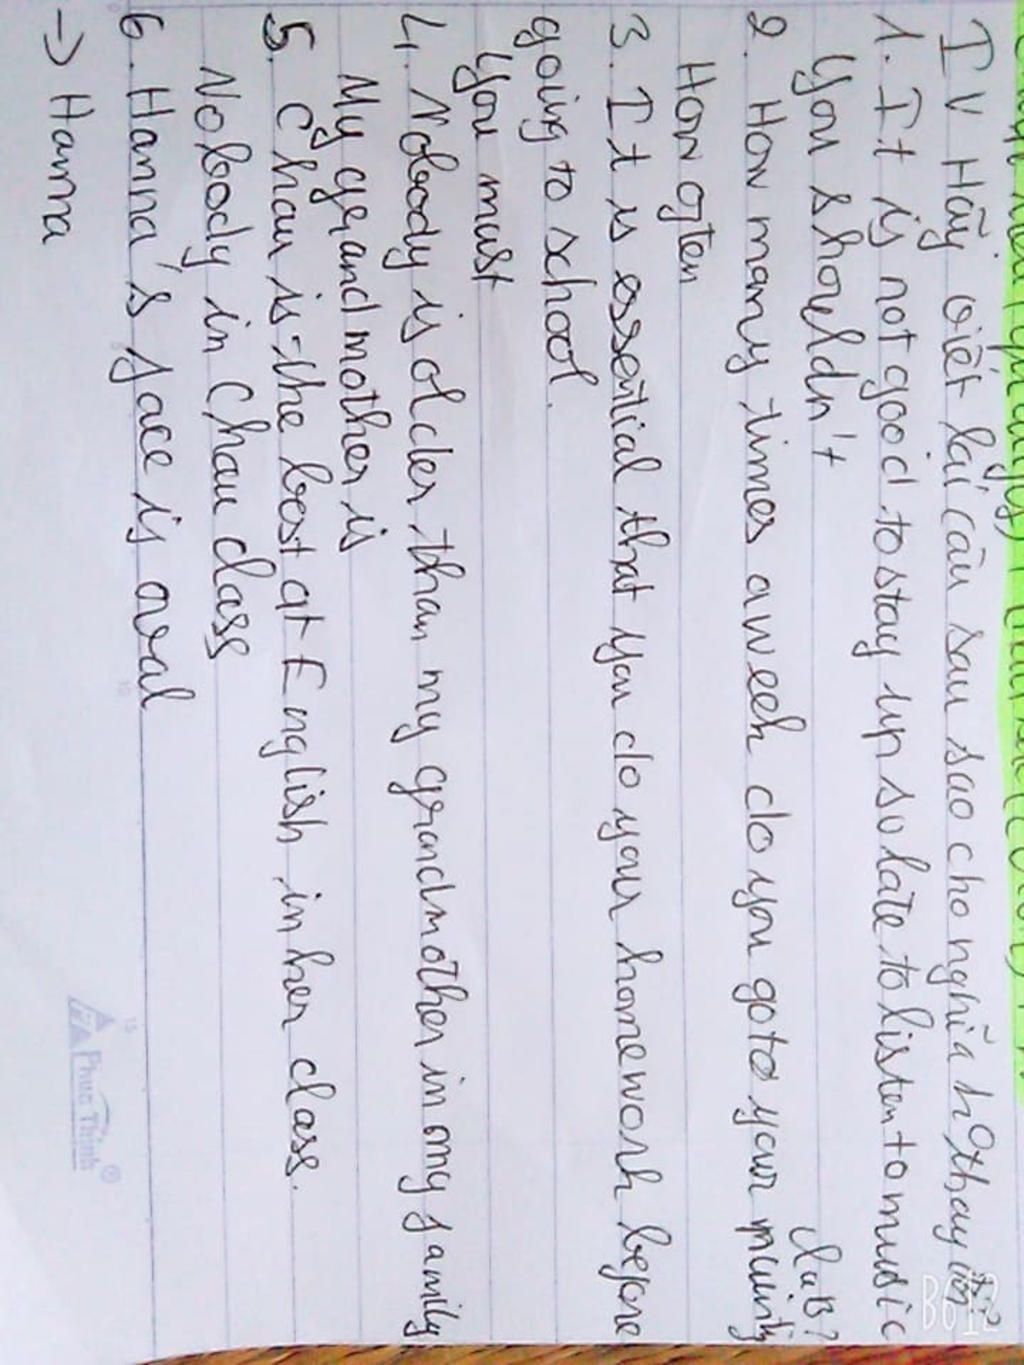 IV Hãy viết lại câu sau sao cho nghĩa
1. It is not good to stay up so late to listen to music
You shouldn't
club?
2. How many times a week do you go to your
How often
3. It is essential that you do your homework before
going to school.
You must
4. Nobody is older than my grandmother in my family
My grandmother is
5. Chau is the best at English in her class.
Nobody in Chau class
6. Hanna's face is oval
→ Hanna
Phuc Thinh®
15
10
B612